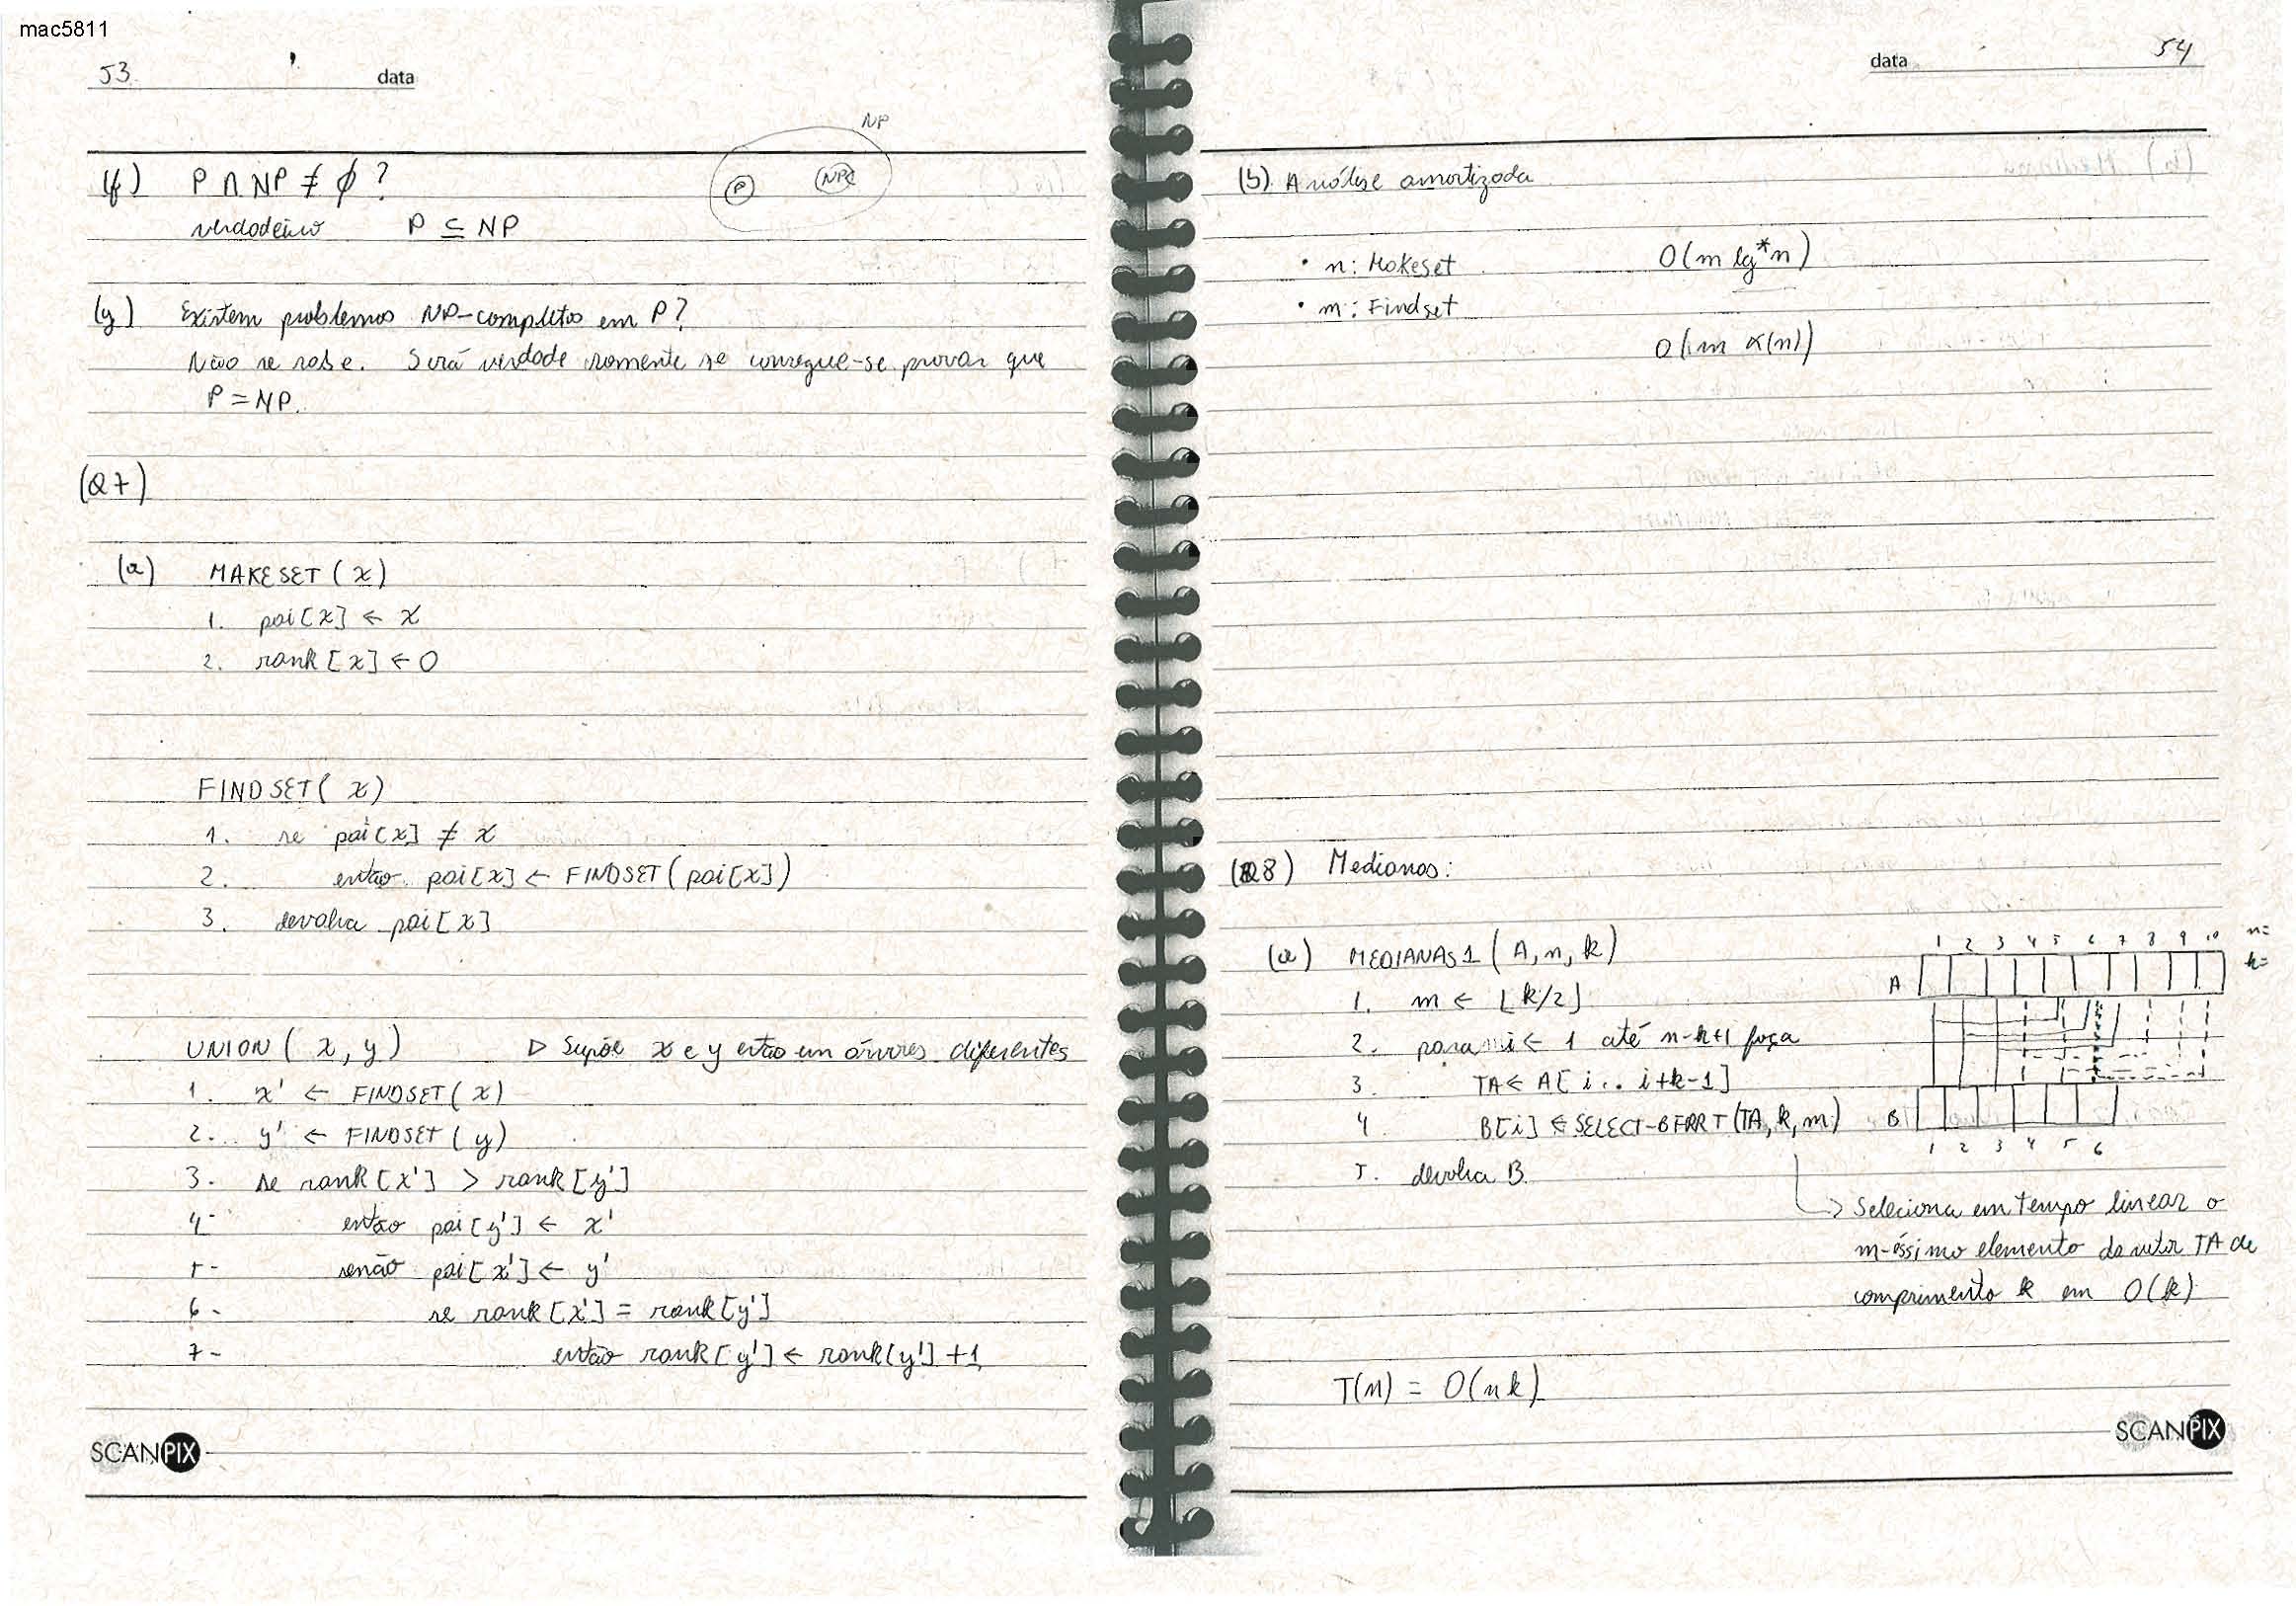 mac5811
53 data
NP
P NPC
(f) P ∩ NP ≠ ∅ ?
verdadeiro P ⊆ NP
(g) Existem problemas NP-completos em P?
Não se sabe. Será verdade somente se consegue-se provar que
P = NP.
(Q7)
(a) MAKESET (x)
1. pai[x] ← x
2. rank[x] ← 0
FINDSET (x)
1. se pai[x] ≠ x
2. então pai[x] ← FINDSET (pai[x])
3. devolva pai[x]
UNION (x, y) ▷ Supõe x e y estão em árvores diferentes
1. x' ← FINDSET (x)
2. y' ← FINDSET (y)
3. se rank[x'] > rank[y']
4- então pai[y'] ← x'
5- senão pai[x'] ← y'
6- se rank[x'] = rank[y']
7- então rank[y'] ← rank[y'] + 1
SCANPIX
data 54
(b) Análise amortizada
• n: Makeset O(m lg* n)
• m: Findset
O(m α(n))
(Q8) Medianas:
(a) MEDIANAS1 (A, n, k)
1. m ← ⌊k/2⌋
2. para i ← 1 até n-k+1 faça
3. TA ← A[i..i+k-1]
4 B[i] ← SELECT-BFPRT (TA, k, m)
5. devolva B
1 2 3 4 5 6 7 8 9 10 n=
k=
A
B
1 2 3 4 5 6
→ Seleciona em tempo linear o
m-éssimo elemento do vetor TA de
comprimento k em O(k)
T(n) = O(nk)
SCANPIX